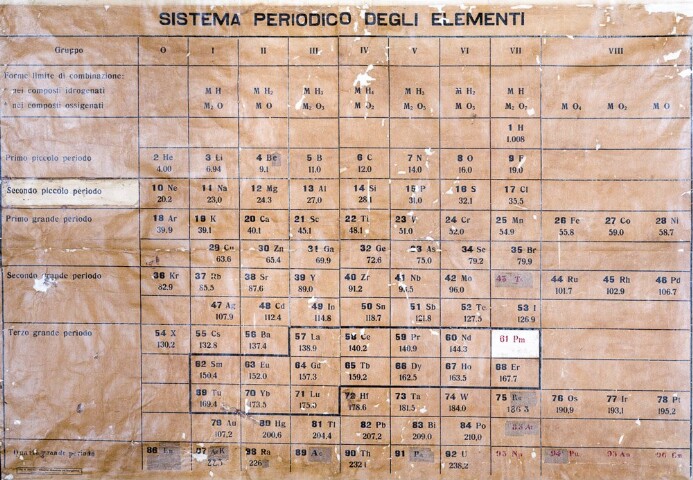 SISTEMA PERIODICO DEGLI ELEMENTI
Gruppo O I II III IV V VI VII VIII
Forme limite di combinazione:
nei composti idrogenati M H M H₂ M H₃ M H₄ M H₃ M H₂ M H
" nei composti ossigenati M₂ O M O M₂ O₃ M O₂ M₂ O₇ M O₄ M O₂ M O
1 H
1.008
Primo piccolo periodo 2 He 3 Li 4 Be 5 B 6 C 7 N 8 O 9 F
4.00 6.94 9.1 11.0 12.0 14.0 16.0 19.0
Secondo piccolo periodo 10 Ne 11 Na 12 Mg 13 Al 14 Si 15 P 16 S 17 Cl
20.2 23,0 24.3 27,0 28,1 31.0 32.1 35,5
Primo grande periodo 18 Ar 19 K 20 Ca 21 Sc 22 Ti 23 V 24 Cr 25 Mn 26 Fe 27 Co 28 Ni
39.9 39.1 40.1 45.1 48.1 51.0 52.0 54.9 55.8 59.0 58.7
29 Cu 30 Zn 31 Ga 32 Ge 33 As 34 Se 35 Br
63.6 65.4 69.9 72.6 75.0 79.2 79.9
Secondo grande periodo 36 Kr 37 Rb 38 Sr 39 Y 40 Zr 41 Nb 42 Mo 43 44 Ru 45 Rh 46 Pd
82.9 85.5 87.6 89.0 91.2 93.5 96.0 101.7 102.9 106.7
47 Ag 48 Cd 49 In 50 Sn 51 Sb 52 Te 53 I
107.9 112.4 114.8 118.7 121.8 127.5 126.9
Terzo grande periodo 54 X 55 Cs 56 Ba 57 La 58 Ce 59 Pr 60 Nd 61 Pm
130.2 132.8 137.4 138.9 140.2 140.9 144.3
62 Sm 63 Eu 64 Gd 65 Tb 66 Dy 67 Ho 68 Er
150.4 152.0 157.3 159.2 162.5 163.5 167.7
69 Tu 70 Yb 71 Lu 72 Hf 73 Ta 74 W 75 76 Os 77 Ir 78 Pt
169.4 173.5 175.0 178.6 181.5 184.0 186.3 190,9 193.1 195.2
79 Au 80 Hg 81 Tl 82 Pb 83 Bi 84 Po
107,2 200.6 204.4 207,2 209.0 210,0
Quarto grande periodo 86 87 88 Ra 89 90 Th 91 92 U 93 94 Pu 95 Am 96
226 232.1 238,2